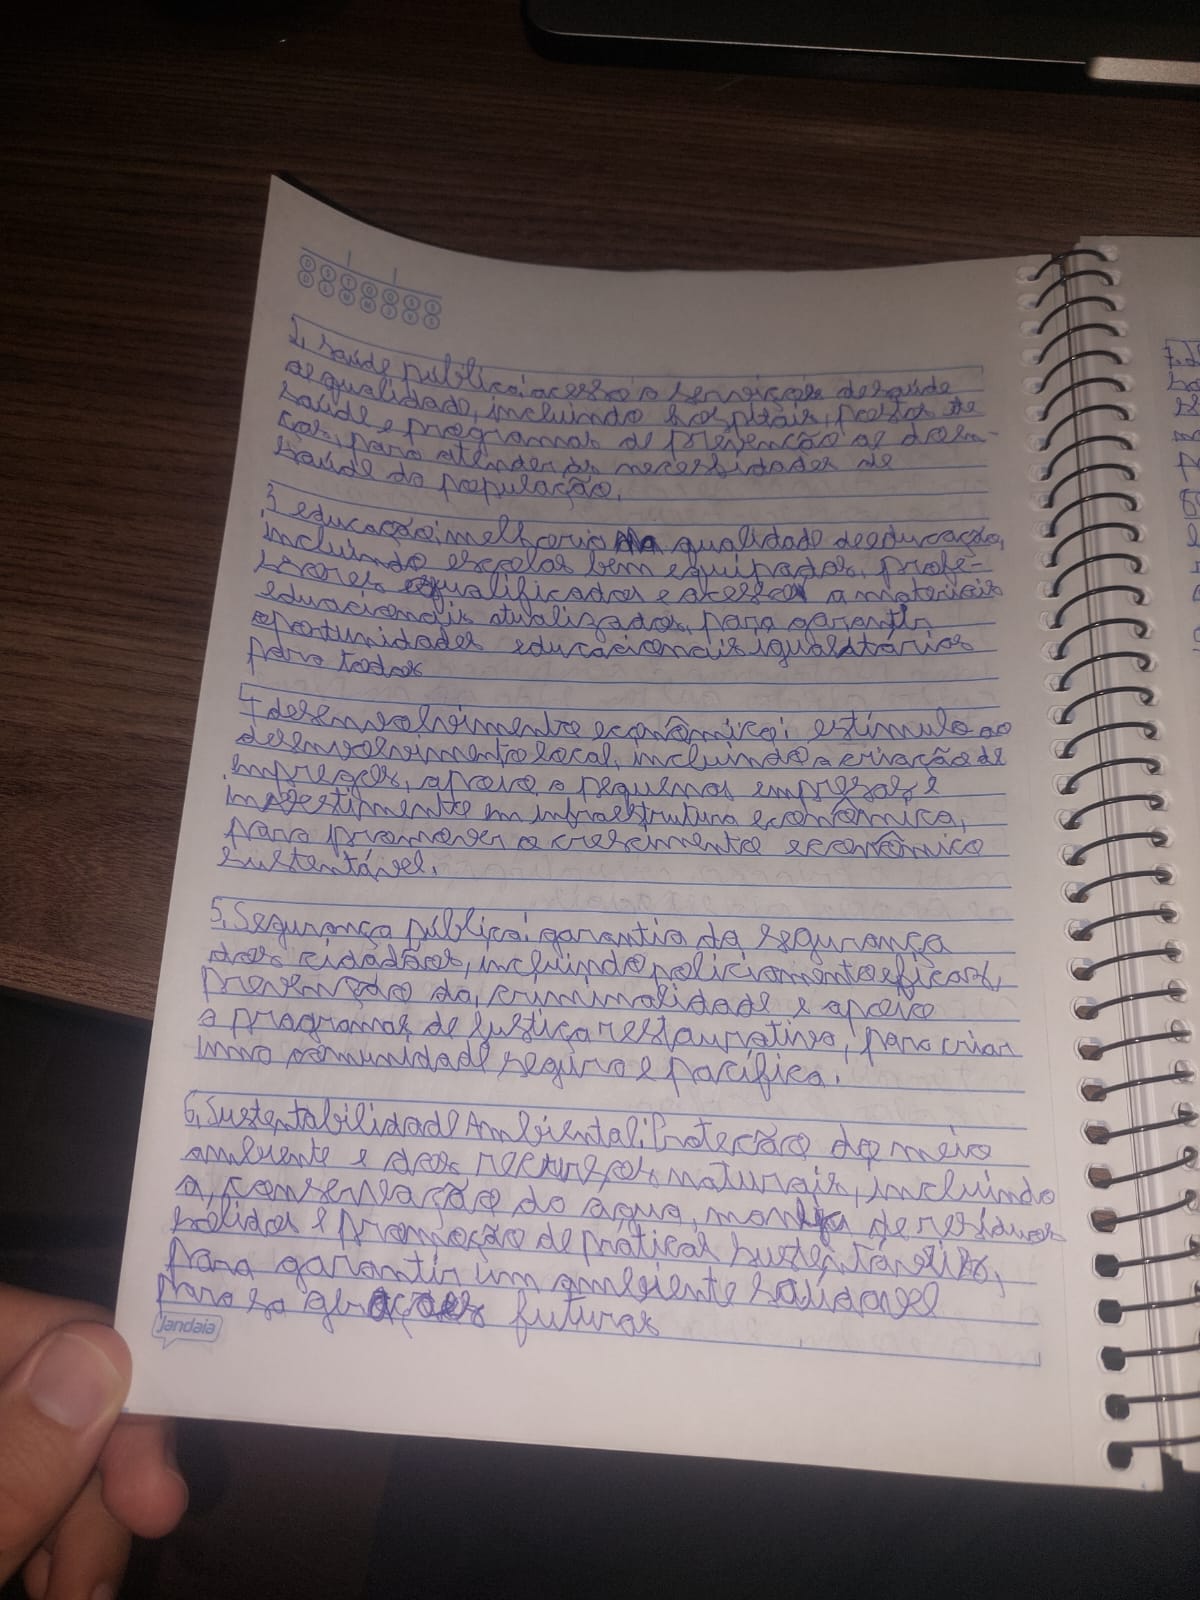 D S T Q Q S S
D L M M J V S
2, saúde pública: acesso a serviços de saúde
de qualidade, incluindo hospitais, postos de
saúde e programas de prevenção de doen-
ças, para atender as necessidades de
saúde da população.
3 educação: melhoria na qualidade de educação,
incluindo escolas bem equipadas, profe-
ssores qualificados e acesso a materiais
eduacionais atualizados, para garantir
oportunidades educacionais igualitários
para todos
4 desenvolvimento econômico: estímulo ao
desenvolvimento local, incluindo a criação de
empregos, apoio a pequenas empresas e
investimento em infraestrutura econômica,
para promover o crescimento econômico
sustentável.
5, Segurança pública: garantia da segurança
dos cidadãos, incluindo policiamento eficaz,
prevenção da criminalidade e apoio
a programas de justiça restaurativa, para criar
uma comunidade segura e pacífica.
6, Sustentabilidade Ambiental: Proteção do meio
ambiente e dos recursos naturais, incluindo
a, conservação do água, de resíduos
sólidos e promoção de praticas sustentáveis,
para garantir um ambiente saudavel
para futuras
Jandaia